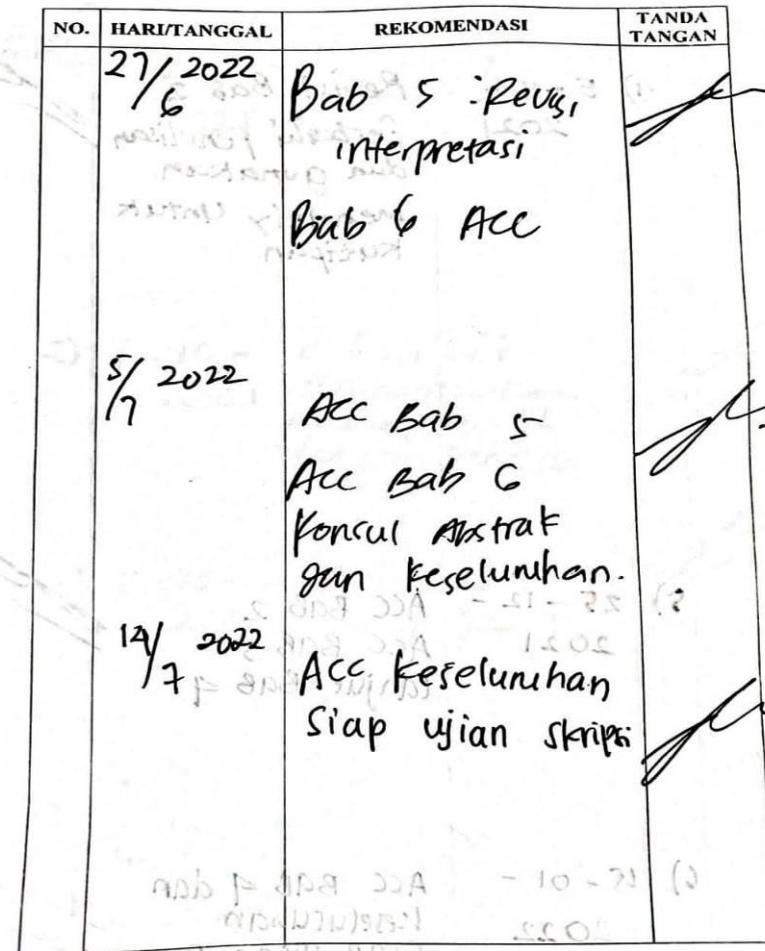 NO. HARI/TANGGAL REKOMENDASI TANDA TANGAN
27/6 2022 Bab 5 : Revisi
interpretasi
Bab 6 Acc
5/7 2022 Acc Bab 5
Acc Bab 6
Konsul Abstrak
dan keseluruhan.
14/7 2022 Acc keseluruhan
siap ujian skripsi